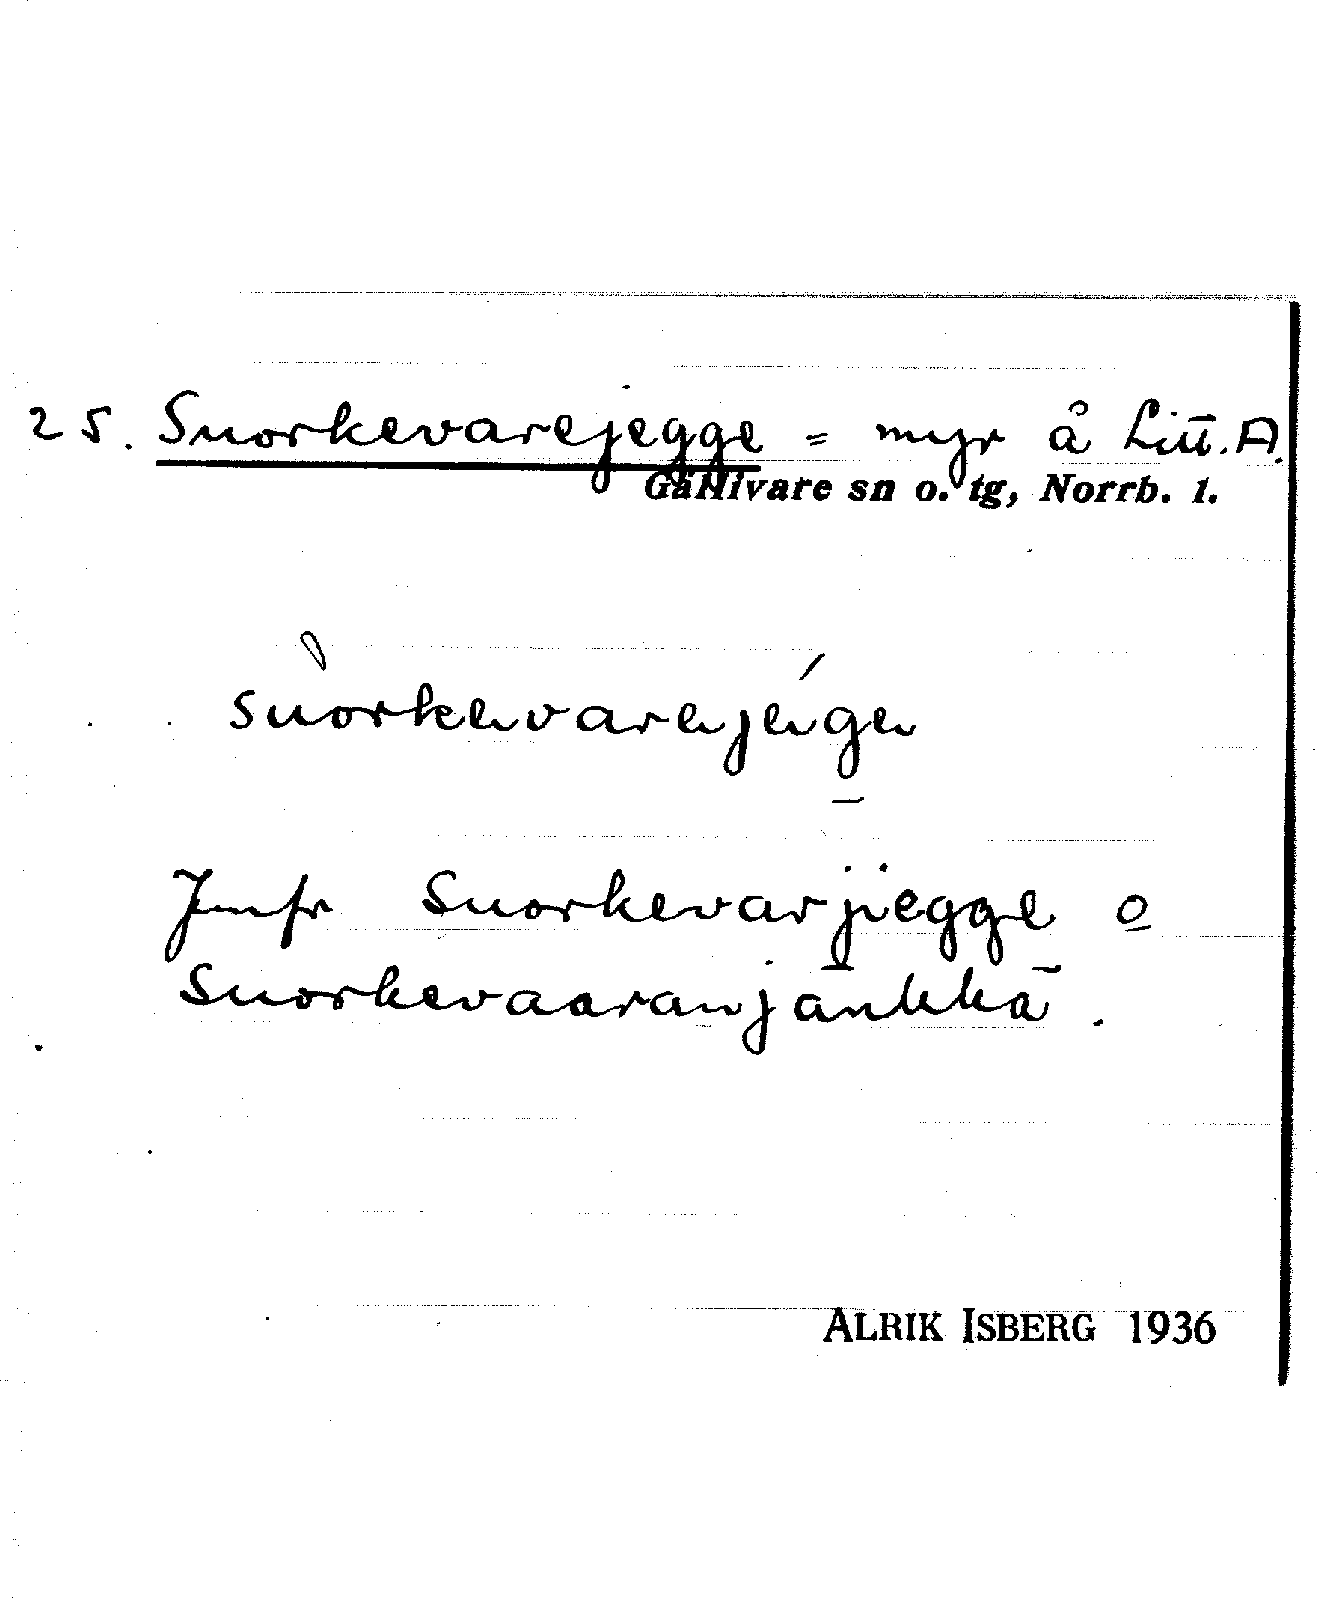 25. Suorkevarejegge = myr å Litt. A.
Gällivare sn o. tg, Norrb. l.
sùorkevarejége
Jmfr Suorkevarjiegge o
Suorkevaaranjänkkä.
ALRIK ISBERG 1936